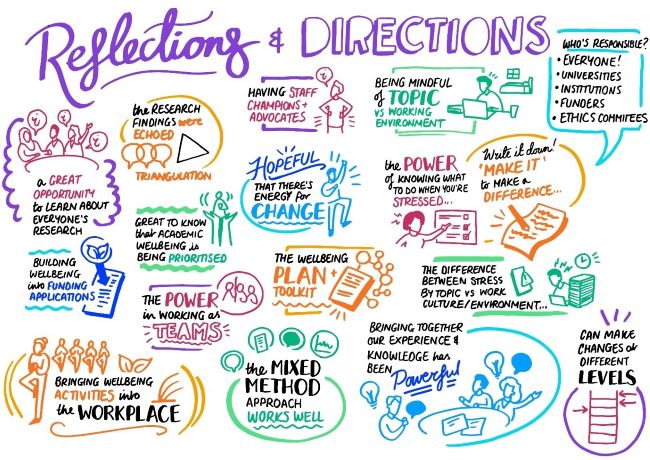 Reflections & DIRECTIONS
WHO'S RESPONSIBLE?
• EVERYONE!
• UNIVERSITIES
• INSTITUTIONS
• FUNDERS
• ETHICS COMMITEES
the RESEARCH
FINDINGS were
ECHOED
TRIANGULATION
HAVING STAFF
CHAMPIONS +
ADVOCATES
BEING MINDFUL
of TOPIC
vs WORKING
ENVIRONMENT
a GREAT
OPPORTUNITY
to LEARN ABOUT
EVERYONE'S
RESEARCH
GREAT TO KNOW
that ACADEMIC
WELLBEING is
BEING PRIORITISED
HOPEFUL
THAT THERE'S
ENERGY for
CHANGE
the POWER
of KNOWING WHAT
TO DO WHEN YOU'RE
STRESSED...
Write it down!
'MAKE IT'
to MAKE a
DIFFERENCE...
BUILDING
WELLBEING
into FUNDING
APPLICATIONS
the POWER
in WORKING as
TEAMS
the WELLBEING
PLAN +
TOOLKIT
the DIFFERENCE
BETWEEN STRESS
BY TOPIC vs WORK
CULTURE/ENVIRONMENT...
BRINGING WELLBEING
ACTIVITIES into
the WORKPLACE
the MIXED
METHOD
APPROACH
WORKS WELL
BRINGING TOGETHER
our EXPERIENCE &
KNOWLEDGE has
BEEN
Powerful
CAN MAKE
CHANGES at
DIFFERENT
LEVELS